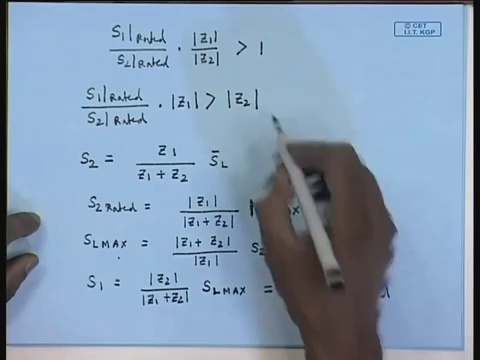 © CET
I.I.T. KGP
S1|Rated / S2|Rated · |Z1| / |Z2| > 1
S1|Rated / S2|Rated · |Z1| > |Z2|
S2 = Z1 / Z1 + Z2 S̄L
S2 Rated = |Z1| / |Z1 + Z2|
SLMAX = |Z1 + Z2| / |Z1| S2
S1 = |Z2| / |Z1 + Z2| SLMAX =